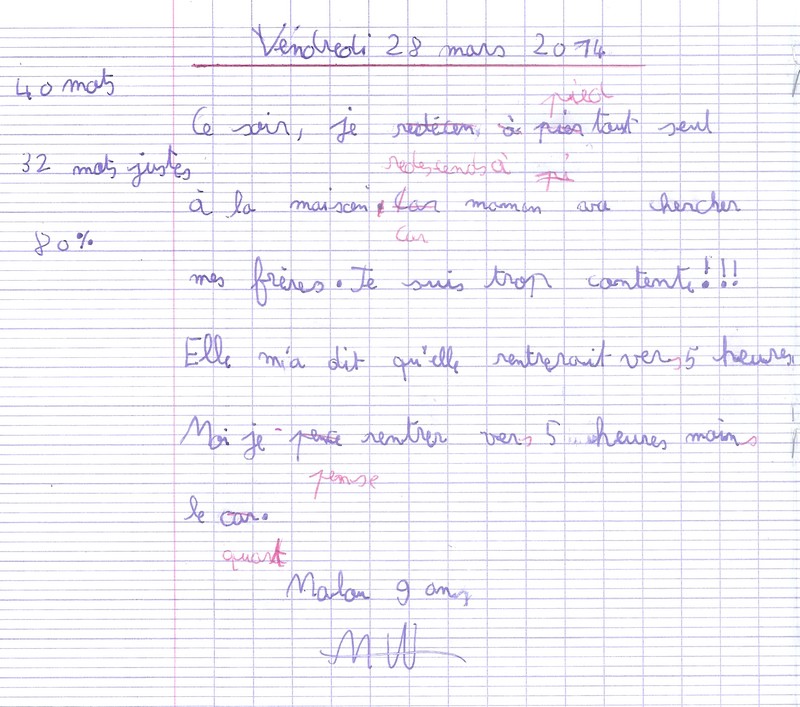 Vendredi 28 mars 2014
40 mots
pied
Ce soir, je à tout seul
32 mots justes
redescends à pi
à la maison, maman va chercher
80%
Car
mes frères. Je suis trop contente!!!
Elle m'a dit qu'elle rentrerait vers 5 heures
Moi je rentrer vers 5 heures moins
pense
le car.
quart
9 ans